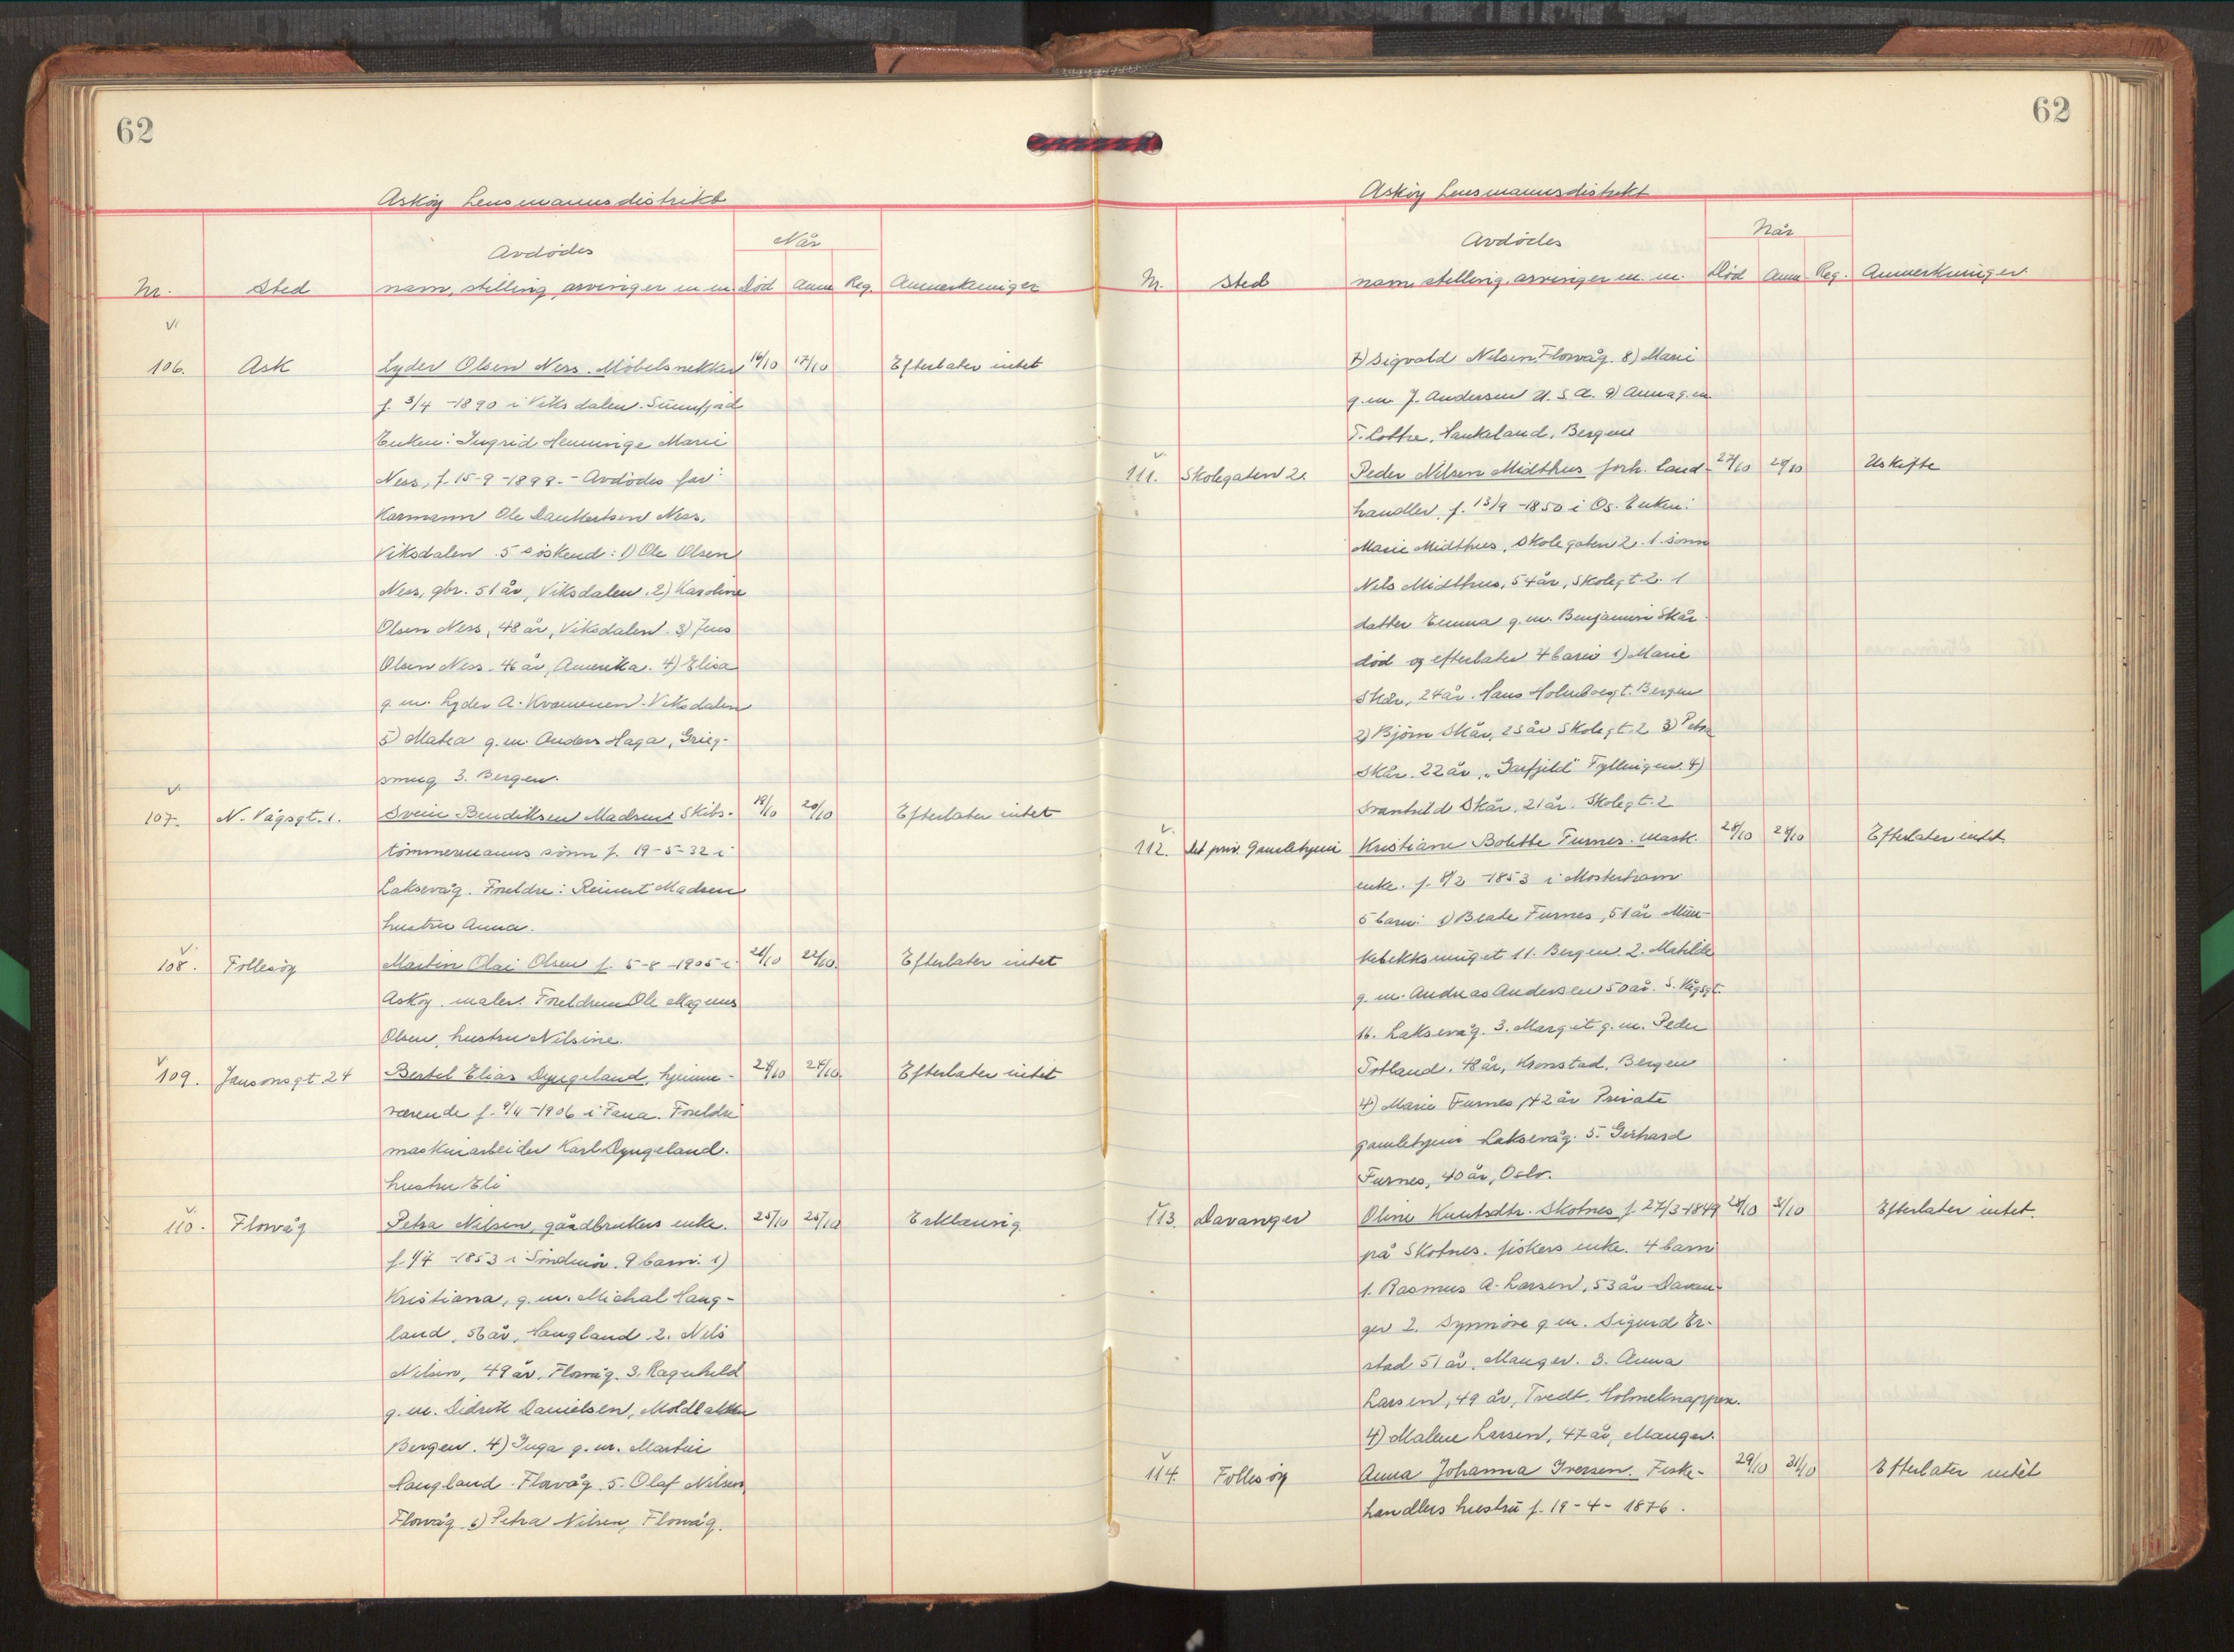 62
Asköy Lensmannsdistrikt
Avdödes
Når
Nr. Sted navn, stilling, arvinger m. m. Död Anm. Reg. Anmerkninger
106. Ask Lyder Olsen Ness. Möbelsnekker 16/10 17/10 Efterlater intet
f. 3/4 -1890 i Viksdalen. Sunnfjord
Enken: Ingrid Henninge Marie
Ness, f. 15-9-1899. - Avdödes far:
Kårmann Ole Dankertsen Ness,
Viksdalen. 5 söskend: 1) Ole Olsen
Ness, gbr. 51 år, Viksdalen. 2) Karoline
Olsen Ness, 48 år, Viksdalen. 3) Jens
Olsen Ness. 46 år, Amerika. 4) Elisa
g. m. Lyder A. Kvammen. Viksdalen
5) Matea g. m. Anders Haga, Grieg-
smug 3. Bergen.
107. N. Vågsgt. 1. Svein Bendiksen Madsen Skibs- 18/10 20/10 Efterlater intet
tömmermanns sönn f. 19-5-32 i
Laksevåg. Foreldre: Reinert Madsen
hustru Anna.
108. Follesöy Martin Olai Olsen f. 5-8-1905 i 21/10 22/10. Efterlater intet
Asköy. maler. Foreldrene Ole Magnus
Olsen, hustru Nilsine.
109. Jansonsgt. 24 Bertel Elias Dyngeland, hjemme- 24/10 24/10. Efterlater intet
værende f. 9/4-1906 i Fana. Foreldre
maskinarbeider Karl Dyngeland.
hustru Eli
110. Florvåg Petra Nilsen, gårdbrukers enke. 25/10 26/10 Erklæring
f. 1/7 -1853 i Söndmör. 9 barn: 1)
Kristiana, g. m. Michal Haug-
land, 56 år, Haugland 2. Nils
Nilsen, 49 år, Florvåg. 3. Ragnhild
g. m. Didrik Danielsen, Møhlbakken
Bergen. 4) Inga g. m. Martin
Haugland. Florvåg. 5. Olaf Nilsen,
Florvåg 6) Petra Nilsen, Florvåg.
62
Asköy Lensmannsdistrikt
Avdödes
Når
Nr. Sted navn, stilling, arvinger m. m. Död Anm. Reg. Anmerkninger
7) Sigvald Nilsen. Florvåg. 8) Marie
g. m. J. Andersen U. S. A. 9) Anna g. m.
Haukeland, Bergen
111. Skolegaten 2. Peder Nilsen Midthus forh. land- 27/10 29/10 Uskifte
handler, f. 13/9 -1850 i Os. Enken:
Marie Midthus, Skolegaten 2. 1 sönn
Nils Midthus, 54 år, Skolegt. 2. 1
datter Emma g. m. Benjamin Skår
död og efterlater 4 barn 1) Marie
Skår, 24 år. Hans Holmboegt. Bergen
2) Björn Skår, 23 år Skolegt. 2 3) Petra
Skår. 22 år, Fyllingen. 4)
Svanhild Skår, 21 år. Skolegt. 2
112. det priv. Gamlehjem Kristiane Bolette Furnes. mask. 28/10 28/10 Efterlater intet
enke. f. 8/2 -1853 i Mosterhavn
5 barn: 1) Beate Furnes, 51 år Mun-
kebekksmuget 11. Bergen. 2. Matilde
g. m. Andreas Andersen 50 år. S. Vågsgt.
16. Laksevåg. 3. Margit g. m. Peder
Totland, 48 år, Kronstad, Bergen
4) Marie Furnes, 42 år Private
gamlehjem Laksevåg. 5. Gerhard
Furnes, 40 år, Oslo.
113. Davanger Oline Knutsdtr. Skotnes f 27/3-1849 28/10 31/10 Efterlater intet.
på Skotnes. fiskers enke. 4 barn
1. Rasmus A. Larsen, 53 år Davan-
ger 2. Synnöve g. m. Sigurd Er-
stad 51 år, Manger. 3. Anna
Larsen, 49 år, Tvedt. Holmeknappen.
4) Malene Larsen, 47 år, Manger.
114. Follesöy Anna Johanna Iversen. Fiske- 29/10 31/10 Efterlater intet
handlers hustru f. 19-4-1876.